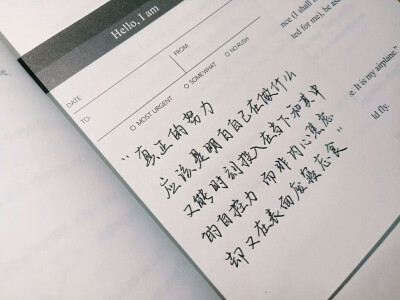 Hello, I am
FROM
DATE
TO:
O MOST URGENT
O SOMEWHAT
O NO-RUSH
nce (I shall
ted for me), he as
e. It is my airplane."
ld fly.
“真正的努力
应该是明白自己在做什么
又能时刻投入在当下和其中
的自控力 而非内心焦虑
却又在表面废寝忘食”